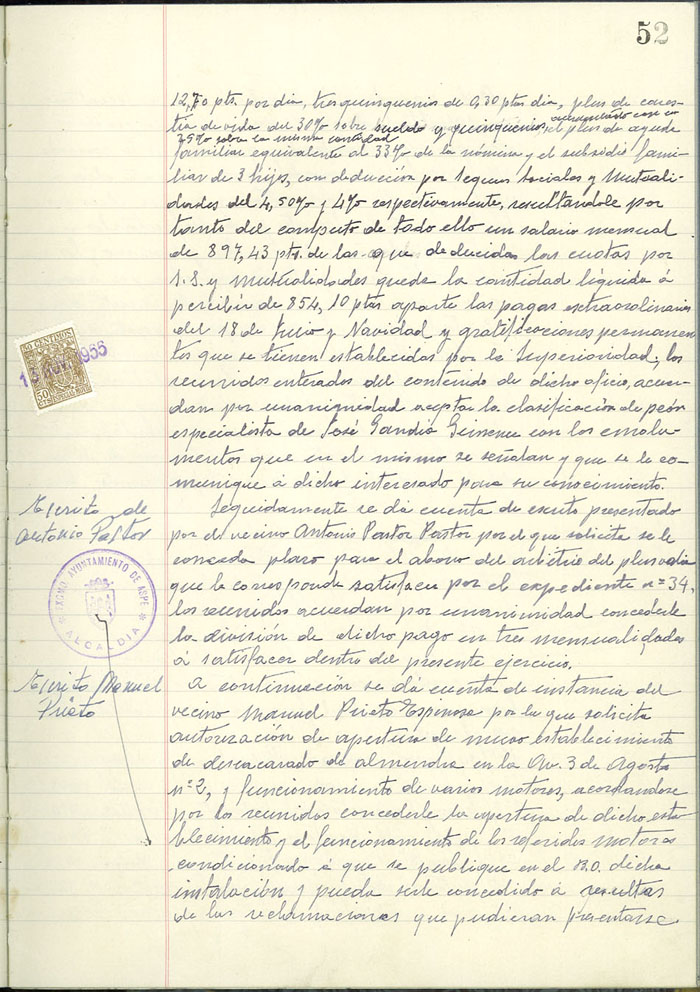 52
12,70 pts. por dia, tres quinquenios de 0,30 ptas dia, plus de cares-
tia de vida del 30% sobre sueldo y quinquenios, el plus de ayuda
25% sobre la misma cantidad
familiar equivalente al 33% de la nómina y el subsidio fami-
liar de 3 hijos, con deducción por Seguros Sociales y Mutuali-
dades del 4,50% y 4% respectivamente, resultándole por
tanto del computo de todo ello un salario mensual
de 897,43 pts. de las que deducidas las cuotas por
S.S. y mutualidades queda la cantidad líquida á
percibir de 854,10 ptas aparte las pagas extraordinarias
del 18 de Julio y Navidad y gratificaciones permanen-
tes que se tienen establecidas por la Superioridad; los
reunidos enterados del contenido de dicho oficio, acuer-
dan por unanimidad aceptar la clasificación de peón
especialista de José Gandía Gimenez con los emolu-
mentos que en el mismo se señalan y que se le co-
munique á dicho interesado para su conocimiento.
Seguidamente se dá cuenta de escrito presentado
por el vecino Antonio Pastor Pastor por el que solicita se le
conceda plazo para el abono del arbitrio del plus valia
que le corresponde satisfacer por el expediente nº 34,
los reunidos acuerdan por unanimidad concederle
la división de dicho pago en tres mensualidades
á satisfacer dentro del presente ejercicio.
A continuación se dá cuenta de instancia del
vecino Manuel Prieto Espinosa por la que solicita
autorización de apertura de nuevo establecimiento
de descascarado de almendra en la Av. 3 de Agosto
nº 2, y funcionamiento de varios motores, acordandose
por los reunidos concederle la apertura de dicho esta-
blecimiento y el funcionamiento de los referidos motores
condicionado á que se publique en el B.O. dicha
instalación y pueda serle concedido á resultas
de las reclamaciones que pudieran presentarse
50 CENTIMOS
1955
50
Escrito de
Antonio Pastor
EXCMO. AYUNTAMIENTO DE ASPE
ALCALDIA
Escrito Manuel
Prieto